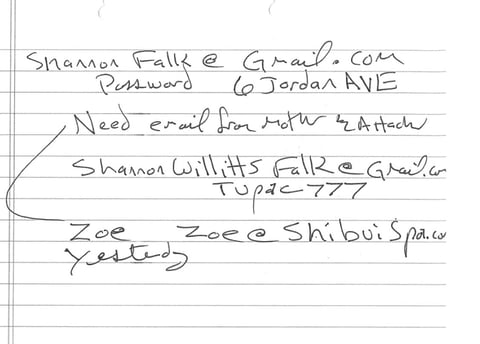 Shannon Falk@ Gmail.com
Password 6 Jordan AVE
Need email from mother & Attach
Shannon Willitts Falk@Gmail.co
Tupac777
Zoe Zoe@ShibuiSpa.co
Yesterday